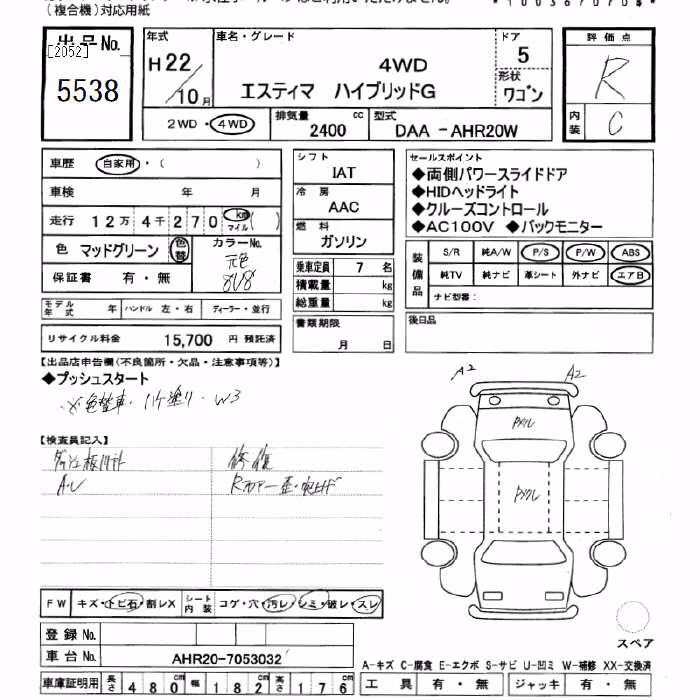 (複合機)対応用紙
出品No.
[2052]
5538
年式
H22/10月
車名・グレード
4WD
エスティマ ハイブリッドG
ドア
5
形状
ワゴン
評価点
R
内装
C
2WD・4WD
排気量 2400 cc
型式 DAA -AHR20W
車歴 自家用・( )
車検 年 月
走行 12万4千270 km マイル ( )
色 マッドグリーン 色替
カラーNo.
元色
8V8
保証書 有・無
モデル年式 年 ハンドル 左・右 ディーラー・並行
リサイクル料金 15,700 円 預託済
シフト
IAT
冷房
AAC
燃料
ガソリン
乗車定員 7 名
積載量 kg
総重量 kg
書類期限
月 日
セールスポイント
◆両側パワースライドドア
◆HIDヘッドライト
◆クルーズコントロール
◆AC100V ◆バックモニター
装備品
S/R 純A/W P/S P/W ABS
純TV 純ナビ 革シート 外ナビ エアB
ナビ型番:
後日品
【出品店申告欄(不良箇所・欠品・注意事項等)】
◆プッシュスタート
※色替車・ハケ塗り・W3
【検査員記入】
A・ル
修復
A2 A2
FW キズ・トビ石・割レX
シート内装 コゲ・穴・汚レ・シミ・破レ・スレ
登録No.
車台No. AHR20-7053032
車庫証明用 長さ 480cm 幅 182cm 高さ 176cm
スペア
A-キズ C-腐食 E-エクボ S-サビ U-凹ミ W-補修 XX-交換済
工具 有・無 ジャッキ 有・無